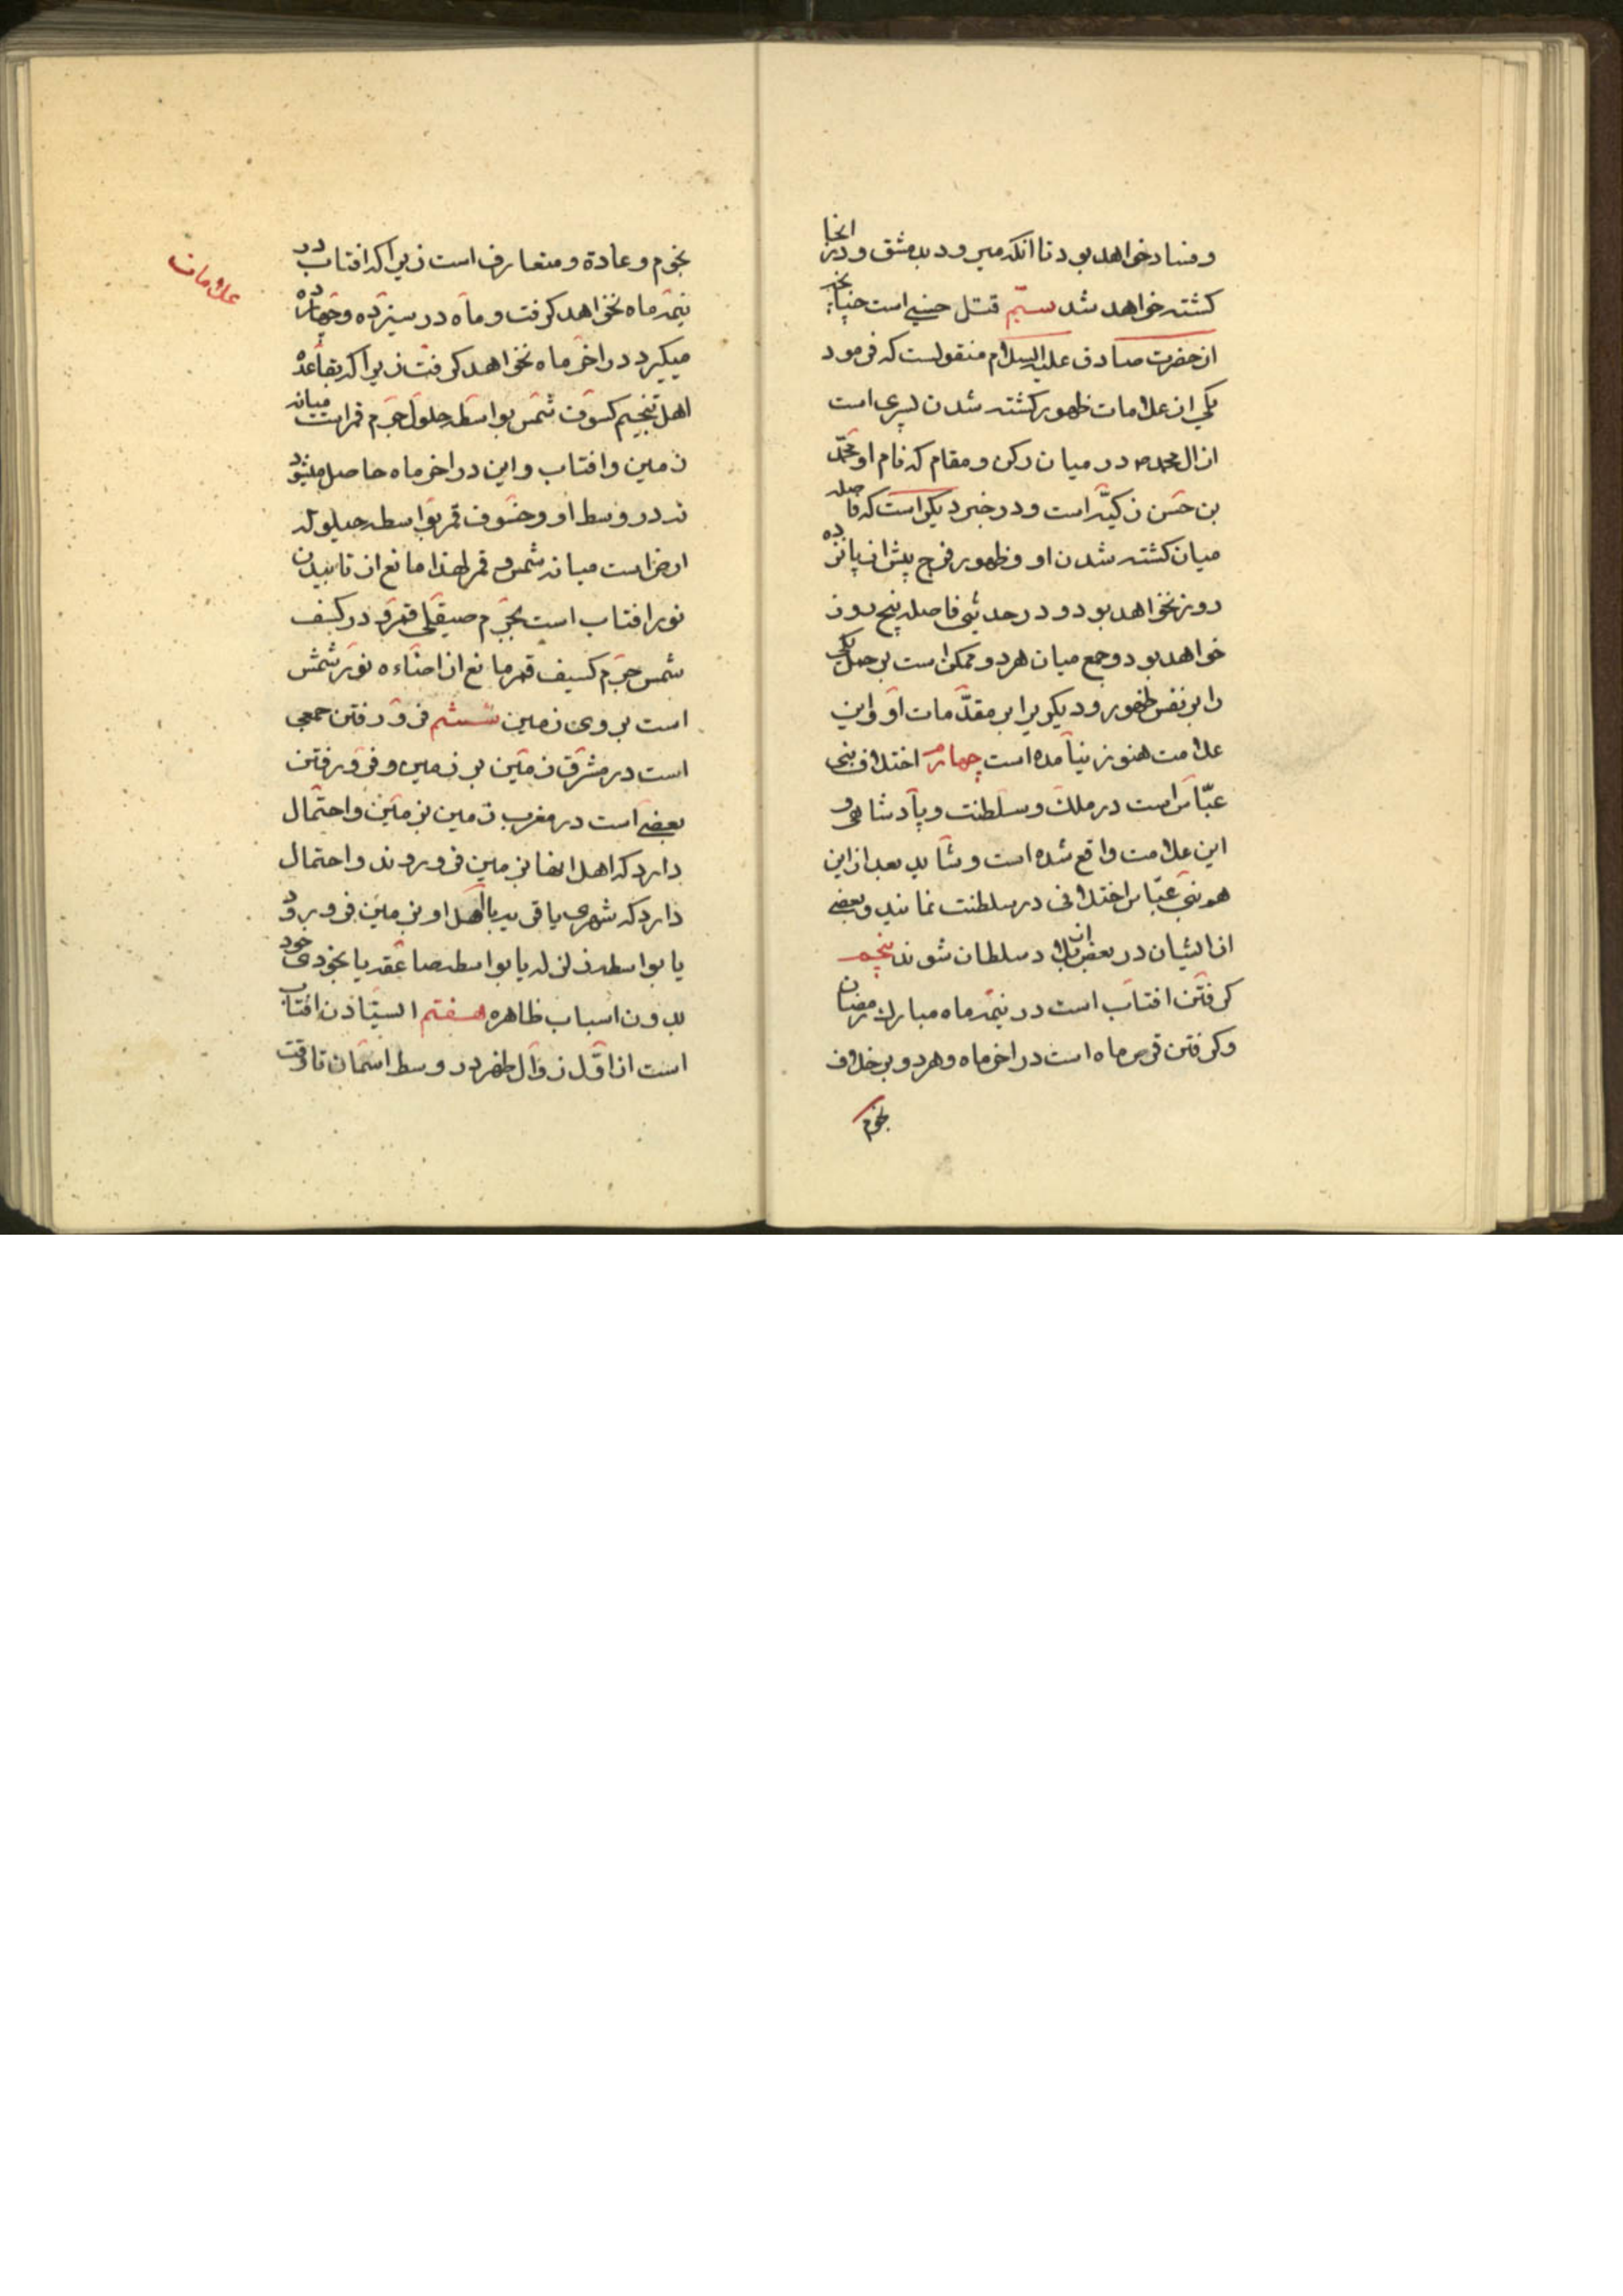 و فساد خواهد بود تا آنکه میرود بدمشق و در انجا
کشته خواهد شد سیّم قتل حسنی است چنانچه
از حضرت صادق علیه السلام منقولست که فرمود
یکی از علامات ظهور کشته شدن پسری است
از ال محمد ص در میان رکن و مقام که نام او محمّد
بن حسن زکیّه است و در خبر دیگر است که فاصله
میان کشته شدن او و ظهور فرج بیش از پانزده
روز نخواهد بود و در حدیثی فاصله پنج روز
خواهد بود و جمع میان هر دو ممکن است بر حمل یکی
را بر نفس ظهور و دیگر برا بر مقدّمات او و این
علامت هنوز نیامده است چهارم اختلاف بنی
عبّاس است در ملک و سلطنت و پادشاهی و
این علامت واقع شده است و شاید بعد از این
هم بنی عبّاس اختلافی در سلطنت نمایند و بعضی
از ایشان در بعض از بلاد سلطان شوند پنجم
گرفتن افتاب است در نیمه ماه مبارک رمضان
و گرفتن قرص ماه است در اخر ماه و هر دو بر خلاف
نجوم
علامات
نجوم و عادة و متعارف است زیرا که افتاب در
نیمه ماه نخواهد گرفت و ماه در سیزده و چهارده
میگیرد در اخر ماه نخواهد گرفت زیرا که بقاعده
اهل تنجیم کسوف شمس بواسطه حلول جرم قمر است میانه
زمین و افتاب و این در اخر ماه حاصل میشود
نه در وسط او و خسوف قمر بواسطه حیلوله
ارض است میانه شمس و قمر لهذا مانع از تابیدن
نور افتاب است بجرم صیقلی قمر و در کسف
شمس جرم کسیف قمر مانع از اضاءه نور شمس
است بروی زمین ششم فرو رفتن جمعی
است در مشرق زمین بر زمین و فرو رفتن
بعضی است در مغرب زمین بزمین و احتمال
دارد که اهل انها بزمین فرو روند و احتمال
دارد که شهری یا قریه با اهل او بزمین فرو برود
یا بواسطه زلزله یا بواسطه صاعقه یا بخودی خود
بدون اسباب ظاهره هفتم ایستادن افتاب
است از اوّل زوال ظهر در وسط اسمان تا وقت